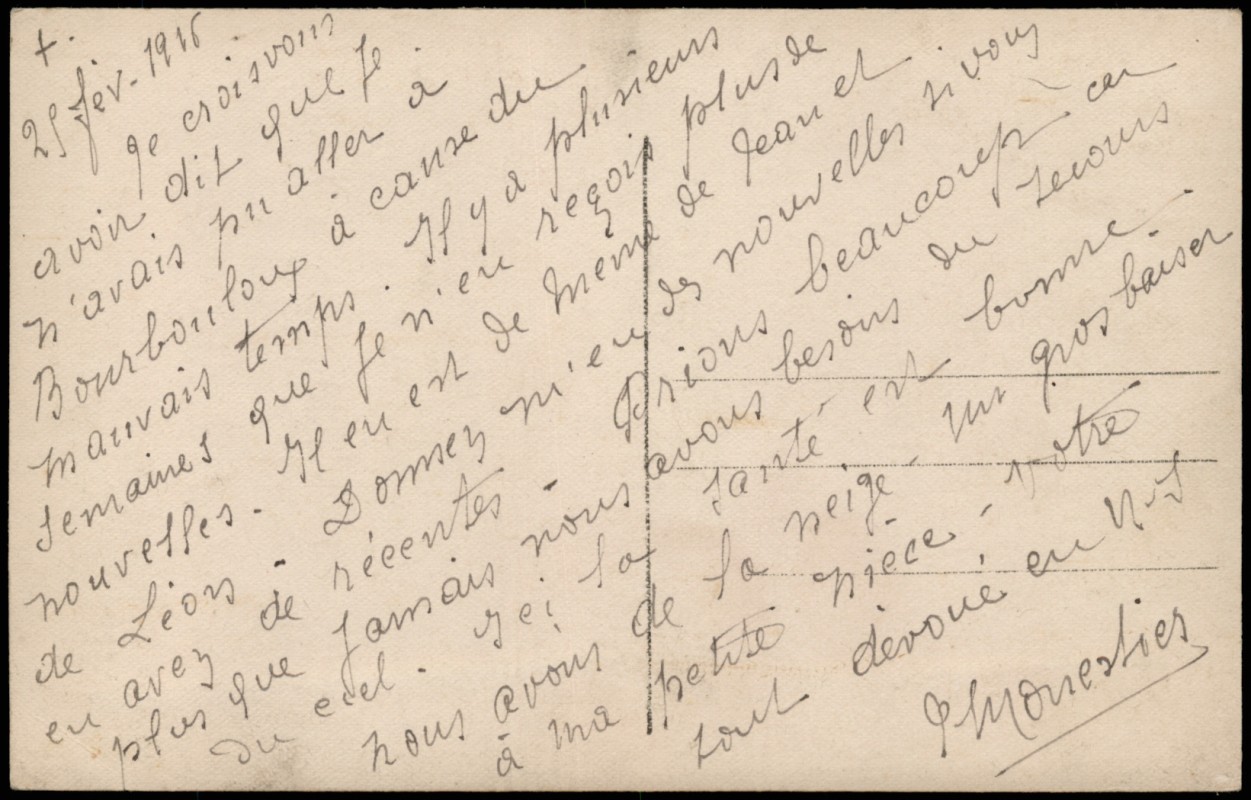 +.
25 fév. 1916
Je crois vous
avoir dit que je
n'avais pu aller à
Bourbouloux à cause du
mauvais temps. Il y a plusieurs
semaines que je n'en reçois plus de
nouvelles. Il en est de même de Jean et
de Léon. Donnez m'en des nouvelles si vous
en avez de récentes. Prions beaucoup car
plus que jamais nous avons besoin du secours
du ciel. Ici la santé est bonne.
nous avons de la neige. un gros baiser
à ma petite nièce. Votre
tout dévoué en N-S
JhMonestier